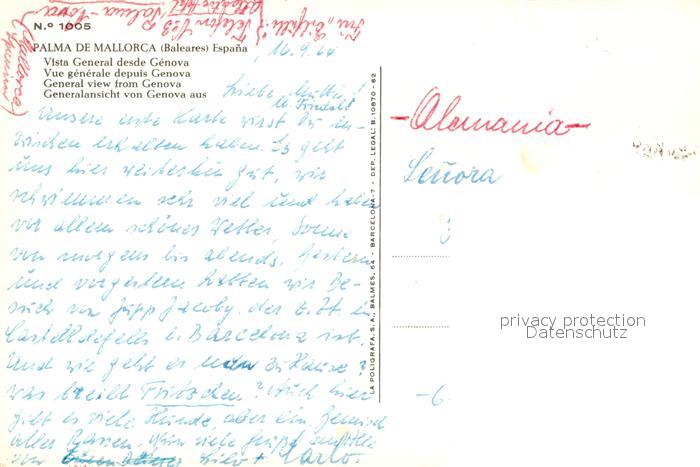 N.º 1005
PALMA DE MALLORCA (Baleares) España
Vista General desde Génova
Vue générale depuis Genova
General view from Genova
Generalansicht von Genova aus
(Mallorca)
(Spanien)
Telefon
16.9.64
Liebe Mutti!
u. Friedel!
Unsere erste Karte wirst Du in-
zwischen erhalten haben. Es geht
uns hier weiterhin gut, wir
schwimmen sehr viel und haben
vor allem schönes Wetter, Sonne
von morgens bis abends. Gestern
und vorgestern hatten wir Be-
such von Jupp Jacoby der z. Zt. in
Castelldefels b. Barcelona ist.
Und wie geht es zu Hause?
Was treibt Fritzchen? Auch hier
gibt es viele Hunde, aber ein Gemisch
aller Rassen. Nun viele Grüße
von Lilo + Carlo.
LA POLIGRAFA, S. A., BALMES, 54 - BARCELONA-7 - DEP. LEGAL: B. 10870 - 62
-Alemania-
Señora
-6
privacy protection
Datenschutz